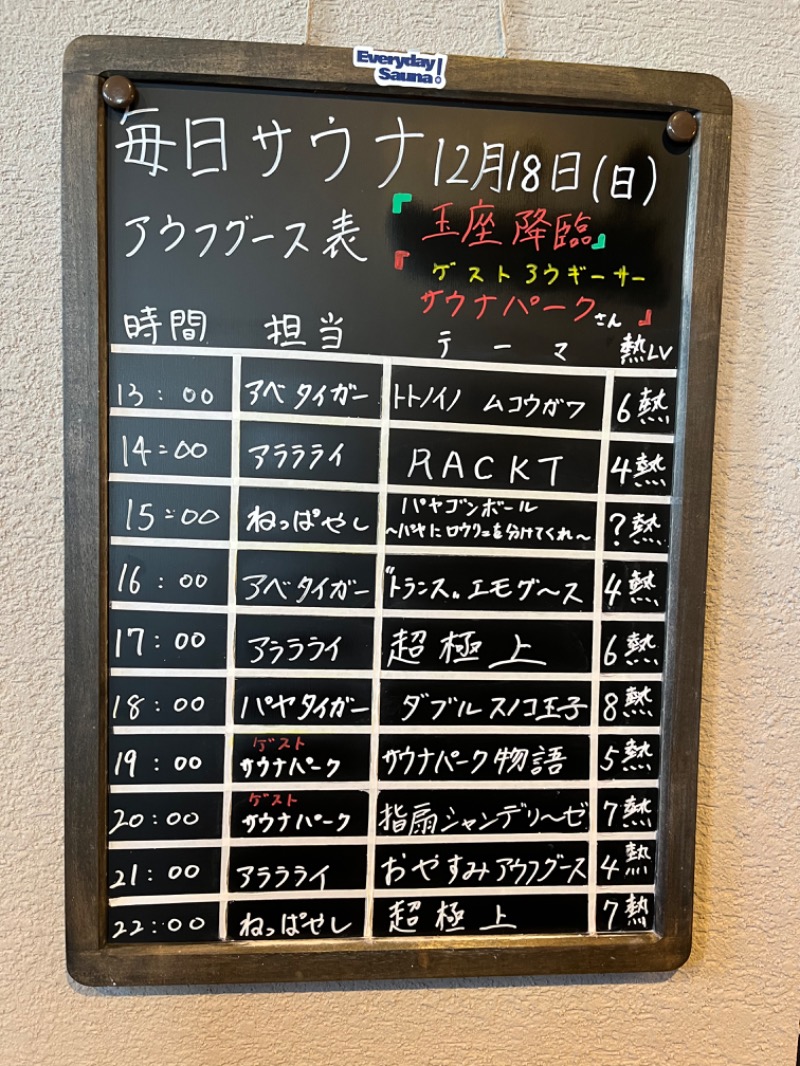 Everyday
Sauna!
毎日サウナ 12月18日(日)
アウフグース表 『玉座降臨』
『ゲストアウギーサー
サウナパークさん』
時間 担当 テーマ 熱LV
13:00 アベタイガー トトノイノ ムコウガワ 6熱
14:00 アララライ RACKT 4熱
15:00 ねっぱやし パヤゴンボール
〜パヤにロウリュを分けてくれ〜 ?熱
16:00 アベタイガー "トランス"エモグ〜ス 4熱
17:00 アララライ 超極上 6熱
18:00 パヤタイガー ダブルスノコ玉子 8熱
19:00 ゲスト
サウナパーク サウナパーク物語 5熱
20:00 ゲスト
サウナパーク 指扇シャンデリ〜ゼ 7熱
21:00 アララライ おやすみアウフグース 4熱
22:00 ねっぱやし 超極上 7熱